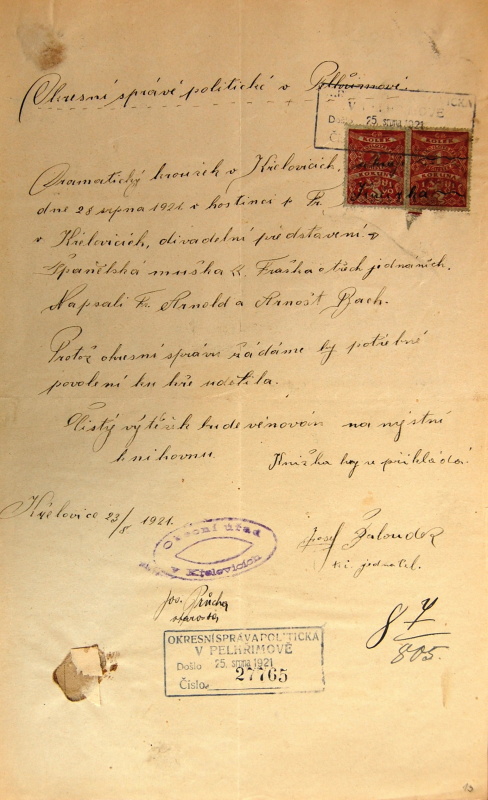 Okresní správě politické v Pelhřimově.
V PELHŘIMOVĚ
Došlo 25. srpna 1921
Dramatický kroužek v Křelovicích,
dne 28 srpna 1921 v hostinci p. Fr.
v Křelovicích, divadelní představení „
Španělská muška“. Fraška o třech jednáních.
Napsali Fr. Arnold a Arnošt Bach.
Protož okresní správu žádáme by potřebné
povolení ku hře udělila.
Čistý výtěžek bude věnován na místní
knihovnu.
Knížka hry se přikládá.
Křelovice 23/8 1921.
Obecní úřad
v Křelovicích
Josef Žaloudek
t.č. jednatel.
Jos. Průcha
starosta
8 4/805.
OKRESNÍ SPRÁVA POLITICKÁ
V PELHŘIMOVĚ
Došlo 25. srpna 1921
Číslo 27765